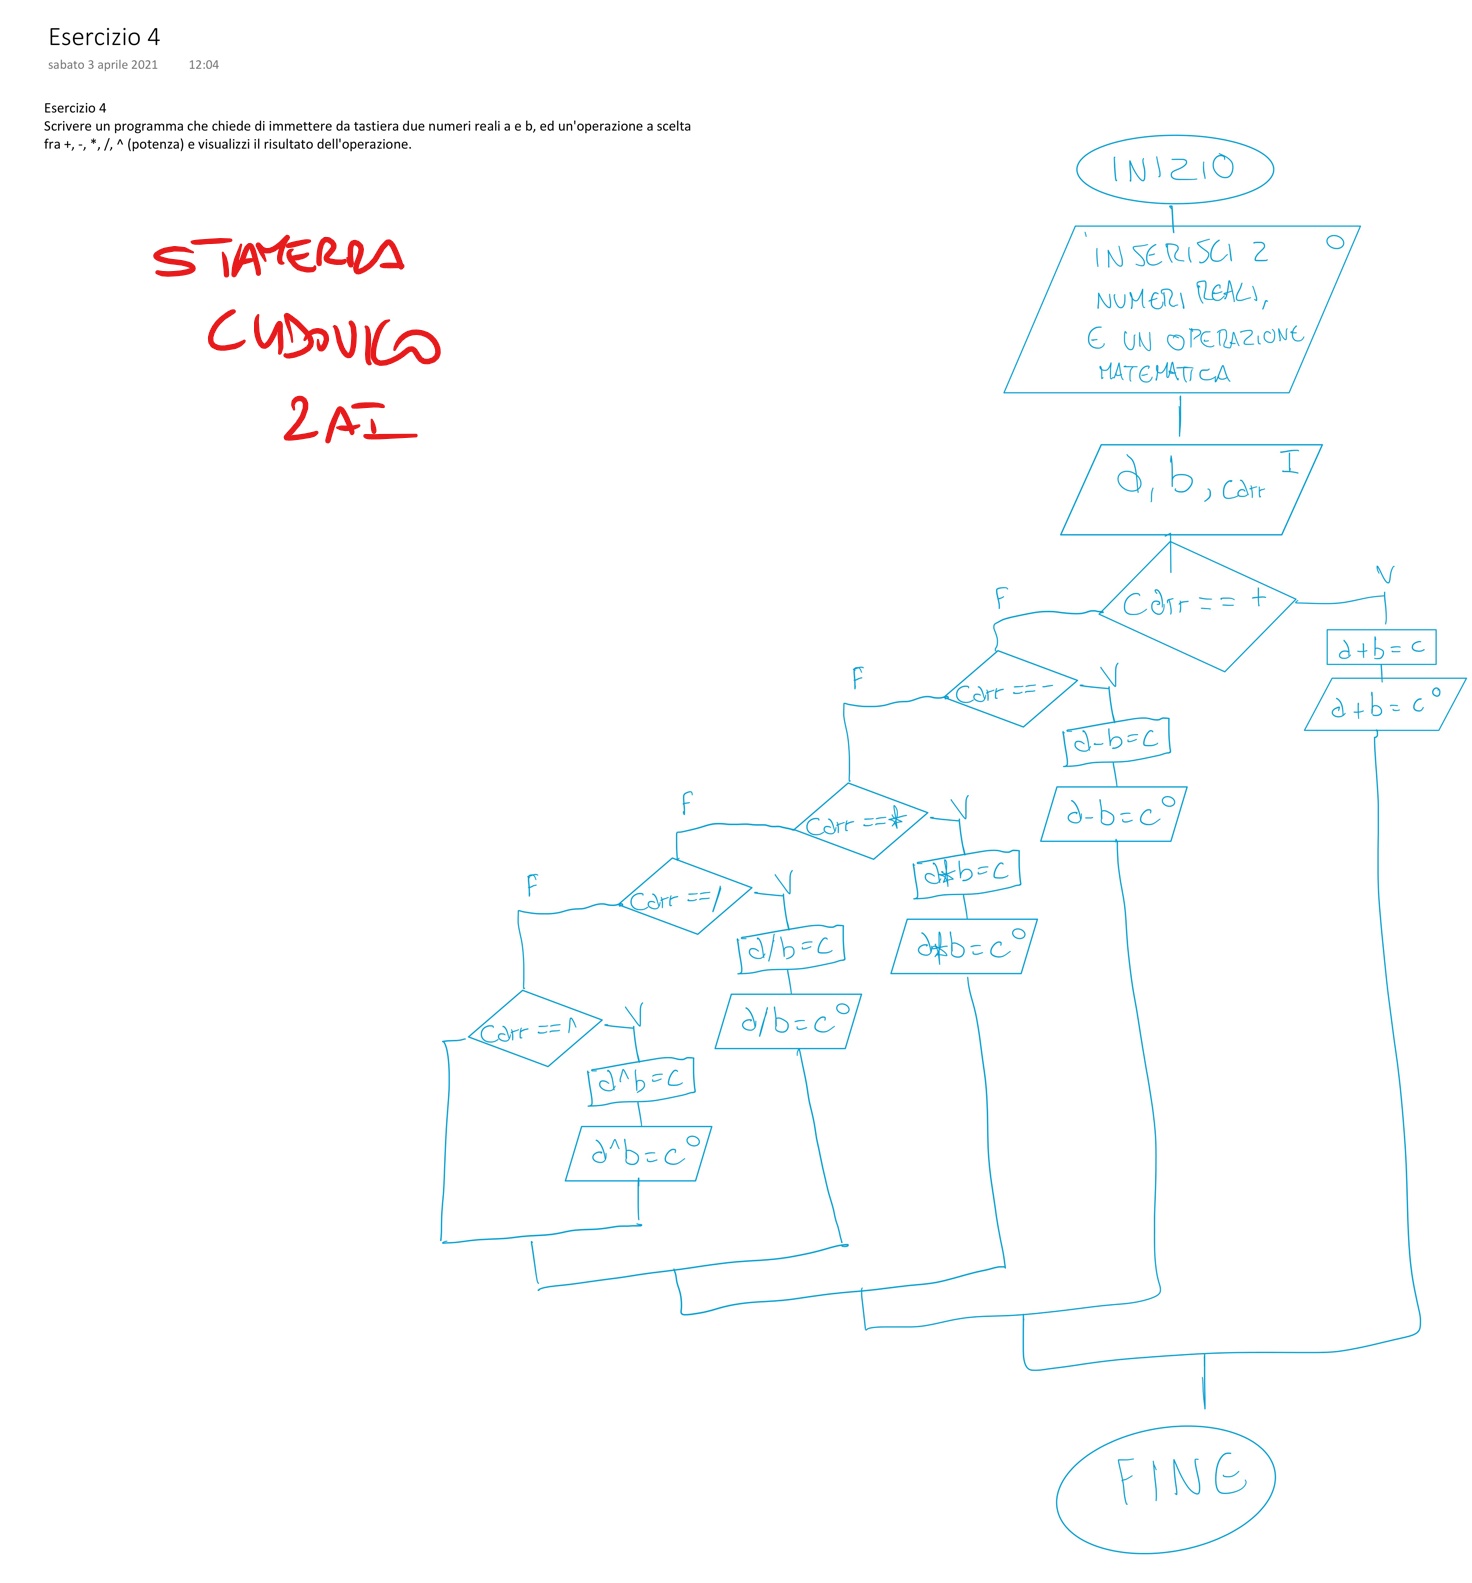 Esercizio 4
sabato 3 aprile 2021 12:04
Esercizio 4
Scrivere un programma che chiede di immettere da tastiera due numeri reali a e b, ed un'operazione a scelta
fra +, -, *, /, ^ (potenza) e visualizzi il risultato dell'operazione.
STAMERRA
LUDOVICO
2AI
INIZIO
INSERISCI 2 O
NUMERI REALI,
E UN OPERAZIONE
MATEMATICA
a, b, carr I
carr == +
V
a+b=c
a+b=c O
F
carr == -
V
a-b=c
a-b=c O
F
carr == *
V
a*b=c
a*b=c O
F
carr == /
V
a/b=c
a/b=c O
F
carr == ^
V
a^b=c
a^b=c O
FINE